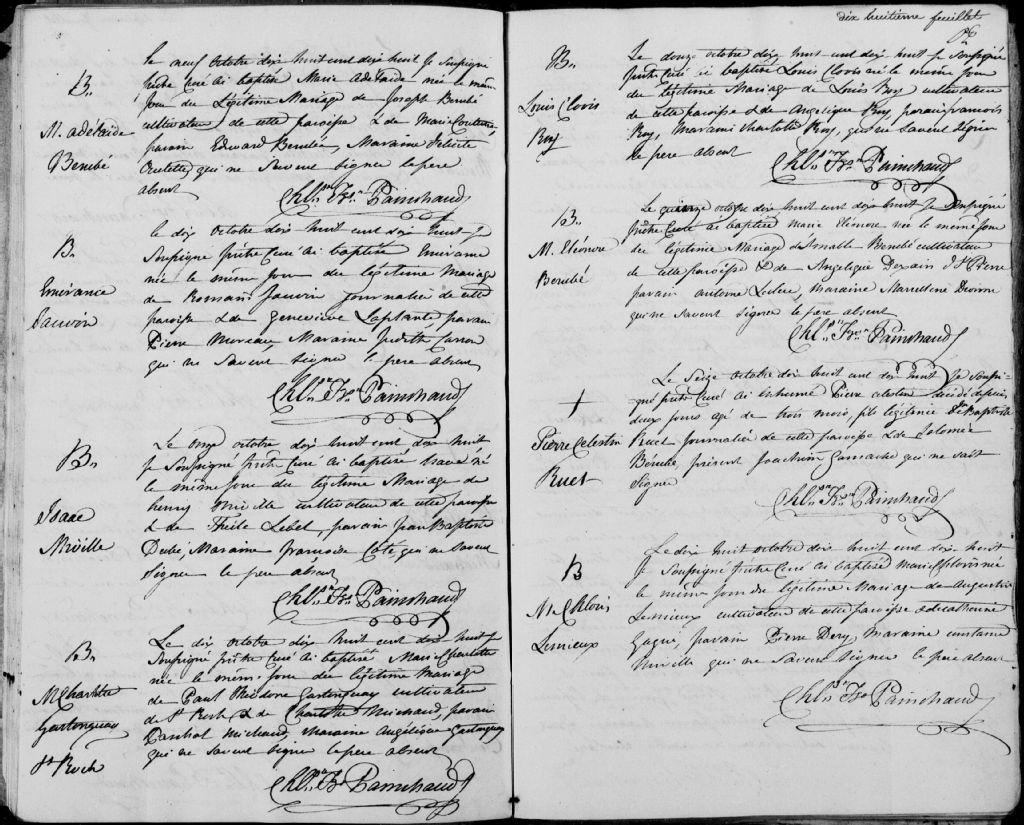 B.
M. adelaide
Berubé
le neuf octobre dix huit cent dix huit Je Soussigné
prêtre Curé ai baptisé Marie adelaide née le même
jour du Légitime Mariage de Joseph Berubé
cultivateur de cette paroisse & de Marie
parain Edward Berubé, Maraine Félicité
Ouelette, qui ne Savent Signer le pere
absent
Chls Frs Painchaud
B.
Emérance
Jauvin
le dix octobre dix huit cent dix huit Je
Soussigné prêtre Curé ai baptisé Emérance
née le même jour du légitime Mariage
de Romain Jauvin journalié de cette
paroisse & de genevieve Laplante parain
Pierre Moreau, Maraine Judith Caron
qui ne Savent Signer le pere absent
Chls Frs Painchaud
B.
Isaac
Miville
Le onze octobre dix huit cent dix huit
Je Soussigné prêtre Curé ai baptisé Isaac né
le même jour du légitime Mariage de
henry Miville cultivateur de cette paroisse
& de Lebel, parain Jean Baptiste
Dubé, Maraine francoise Coté qui ne Savent
Signer le pere absent
Chls Frs Painchaud
B.
M Charlotte
Gastonguay
St Roch
Le dix octobre dix huit cent dix huit Je
Soussigné prêtre Curé ai baptisé Marie Charlotte
née le même jour du légitime Mariage
de Paul Théodore Gastonguay cultivateur
de St Roch & de Charlotte Michaud, parain
Paschal Michaud, Maraine Angélique Gastonguay
qui ne Savent Signer le pere absent
Chls Frs Painchaud
dix huitieme feuillet
B.
Louis Clovis
Roy
Le douze octobre dix huit cent dix huit Je Soussigné
prêtre Curé ai baptisé Louis Clovis né le même jour
du légitime Mariage de Louis Roy cultivateur
de cette paroisse & de Angelique Roy, parain francois
Roy, Maraine Charlotte Roy, qui ne Savent Signer
le pere absent
Chls Frs Painchaud
B.
M. Eléonore
Berubé
Le quinze octobre dix huit cent dix huit Je Soussigné
prêtre Curé ai baptisé marie Eléonore née le même jour
du légitime Mariage de Berubé cultivateur
de cette paroisse & de Angelique
parain antoine Leclerc, maraine Marcelline
qui ne Savent Signer le pere absent
Chls Frs Painchaud
+
Pierre Celestin
Ruest
Le Seize octobre dix huit cent dix huit Je Soussi-
gné prêtre Curé ai inhumé Pierre celestin décédé depuis
deux jours agé de trois mois, fils légitime de Jn Baptiste
Ruest journalié de cette paroisse & de Solomée
Bérubé, présent Joachim Gamache qui ne Sait
Signer
Chls Frs Painchaud
B
M Chlovis
Lemieux
Le dix huit octobre dix huit cent dix huit
Je Soussigné prêtre Curé ai baptisé marie Chlovis née
le même jour du légitime Mariage de Augustin
Lemieux cultivateur de cette paroisse & de catherine
Gagné, parain Pierre Dery, maraine constance
Miville qui ne Savent Signer le pere absent
Chls Frs Painchaud